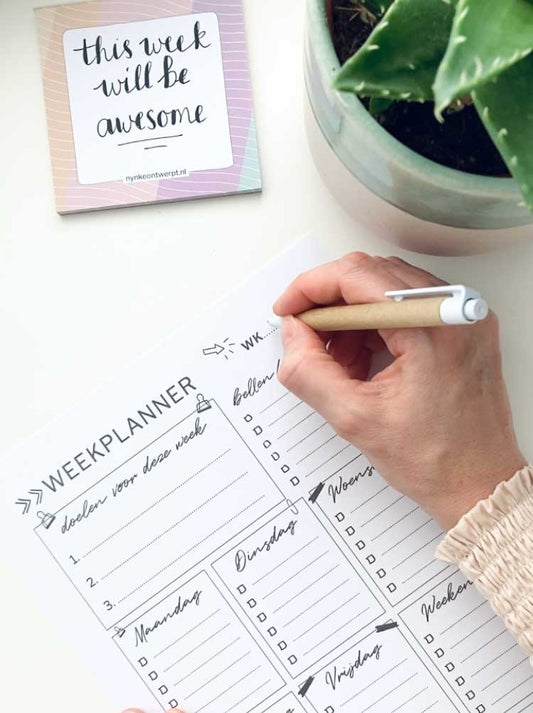 this week
will be
awesome
nynkeontwerpt.nl
WK...
WEEKPLANNER
Bellen /
doelen voor deze week
1.
2.
3.
Woens
Dinsdag
Maandag
Weeken
Vrijdag